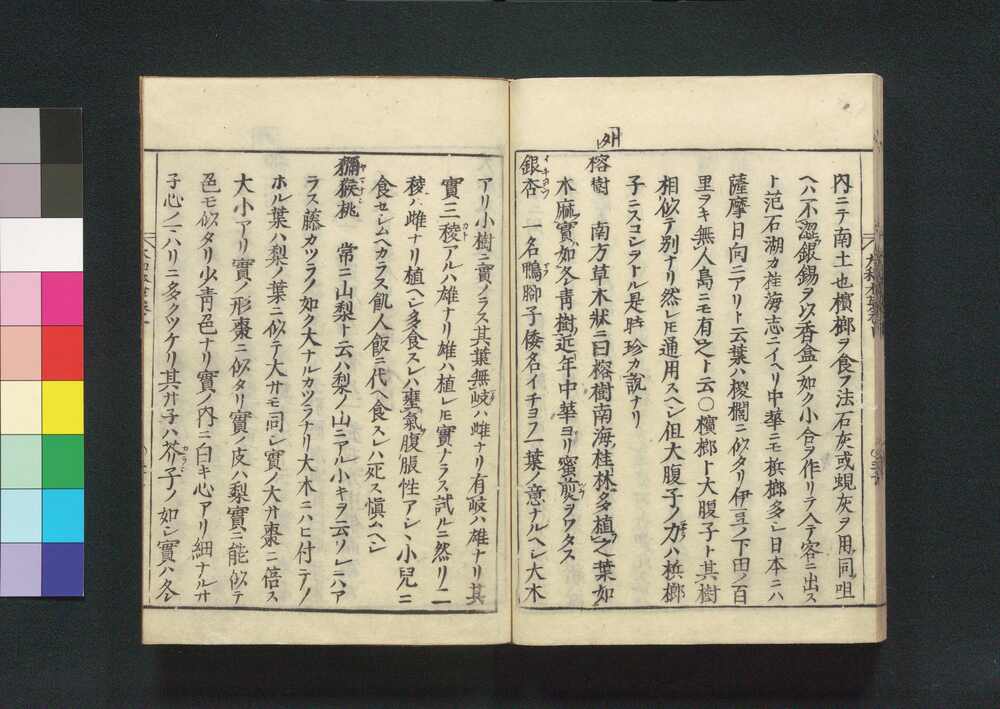 内ニテ南土也檳榔ヲ食フ法石灰或蜆灰ヲ用同咀
ヘハ不澁銀錫ヲ以香盒ノ如ク小合ヲ作リテ入テ客ニ出ス
ト范石湖カ桂海志ニイヘリ中華ニモ檳榔多シ日本ニハ
薩摩日向ニアリト云葉ハ椶櫚ニ似タリ伊豆ノ下田ノ百
里ヲキ無人島ニモ有之ト云〇檳榔ト大腹子ト其樹
相似テ別ナリ然レ𪜈通用スヘシ但大腹子ノ力ハ檳榔
子ニスコシヲトル是時珍カ説ナリ
外
榕樹 南方草木狀ニ曰榕樹南海桂林多植之葉如
木麻實如冬青樹近年中華ヨリ蜜煎ヲワタス
銀杏 一名鴨脚子倭名イチヨウ一葉ノ意ナルヘシ大木
アリ小樹ニ實ノラス其葉無岐ハ雌ナリ有岐ハ雄ナリ其
實三稜アルハ雄ナリ雄ハ植レ𪜈實ノラス試ルニ然リ二
稜ハ雌ナリ植ヘシ多食スレハ壅氣腹脹性アシヽ小兒ニ
食セシムヘカラス飢人飯ニ代ヘ食スレハ死ス愼ムヘシ
獼猴桃 常ニ山梨ト云ハ梨ノ山ニアル小キヲ云ソレニハア
ラス藤カツラノ如ク大ナルカツラナリ大木ニハヒ付テノ
ホル葉ハ梨ノ葉ニ似テ大サモ同シ實ノ大サ棗ニ倍ス
大小アリ實ノ形棗ニ似タリ實ノ皮ハ梨實ニ能似テ
色モ似タリ少青色ナリ實ノ内ニ白キ心アリ細ナルサ
子心ノマハリニ多クツケリ其サ子ハ芥子ノ如シ實ハ冬